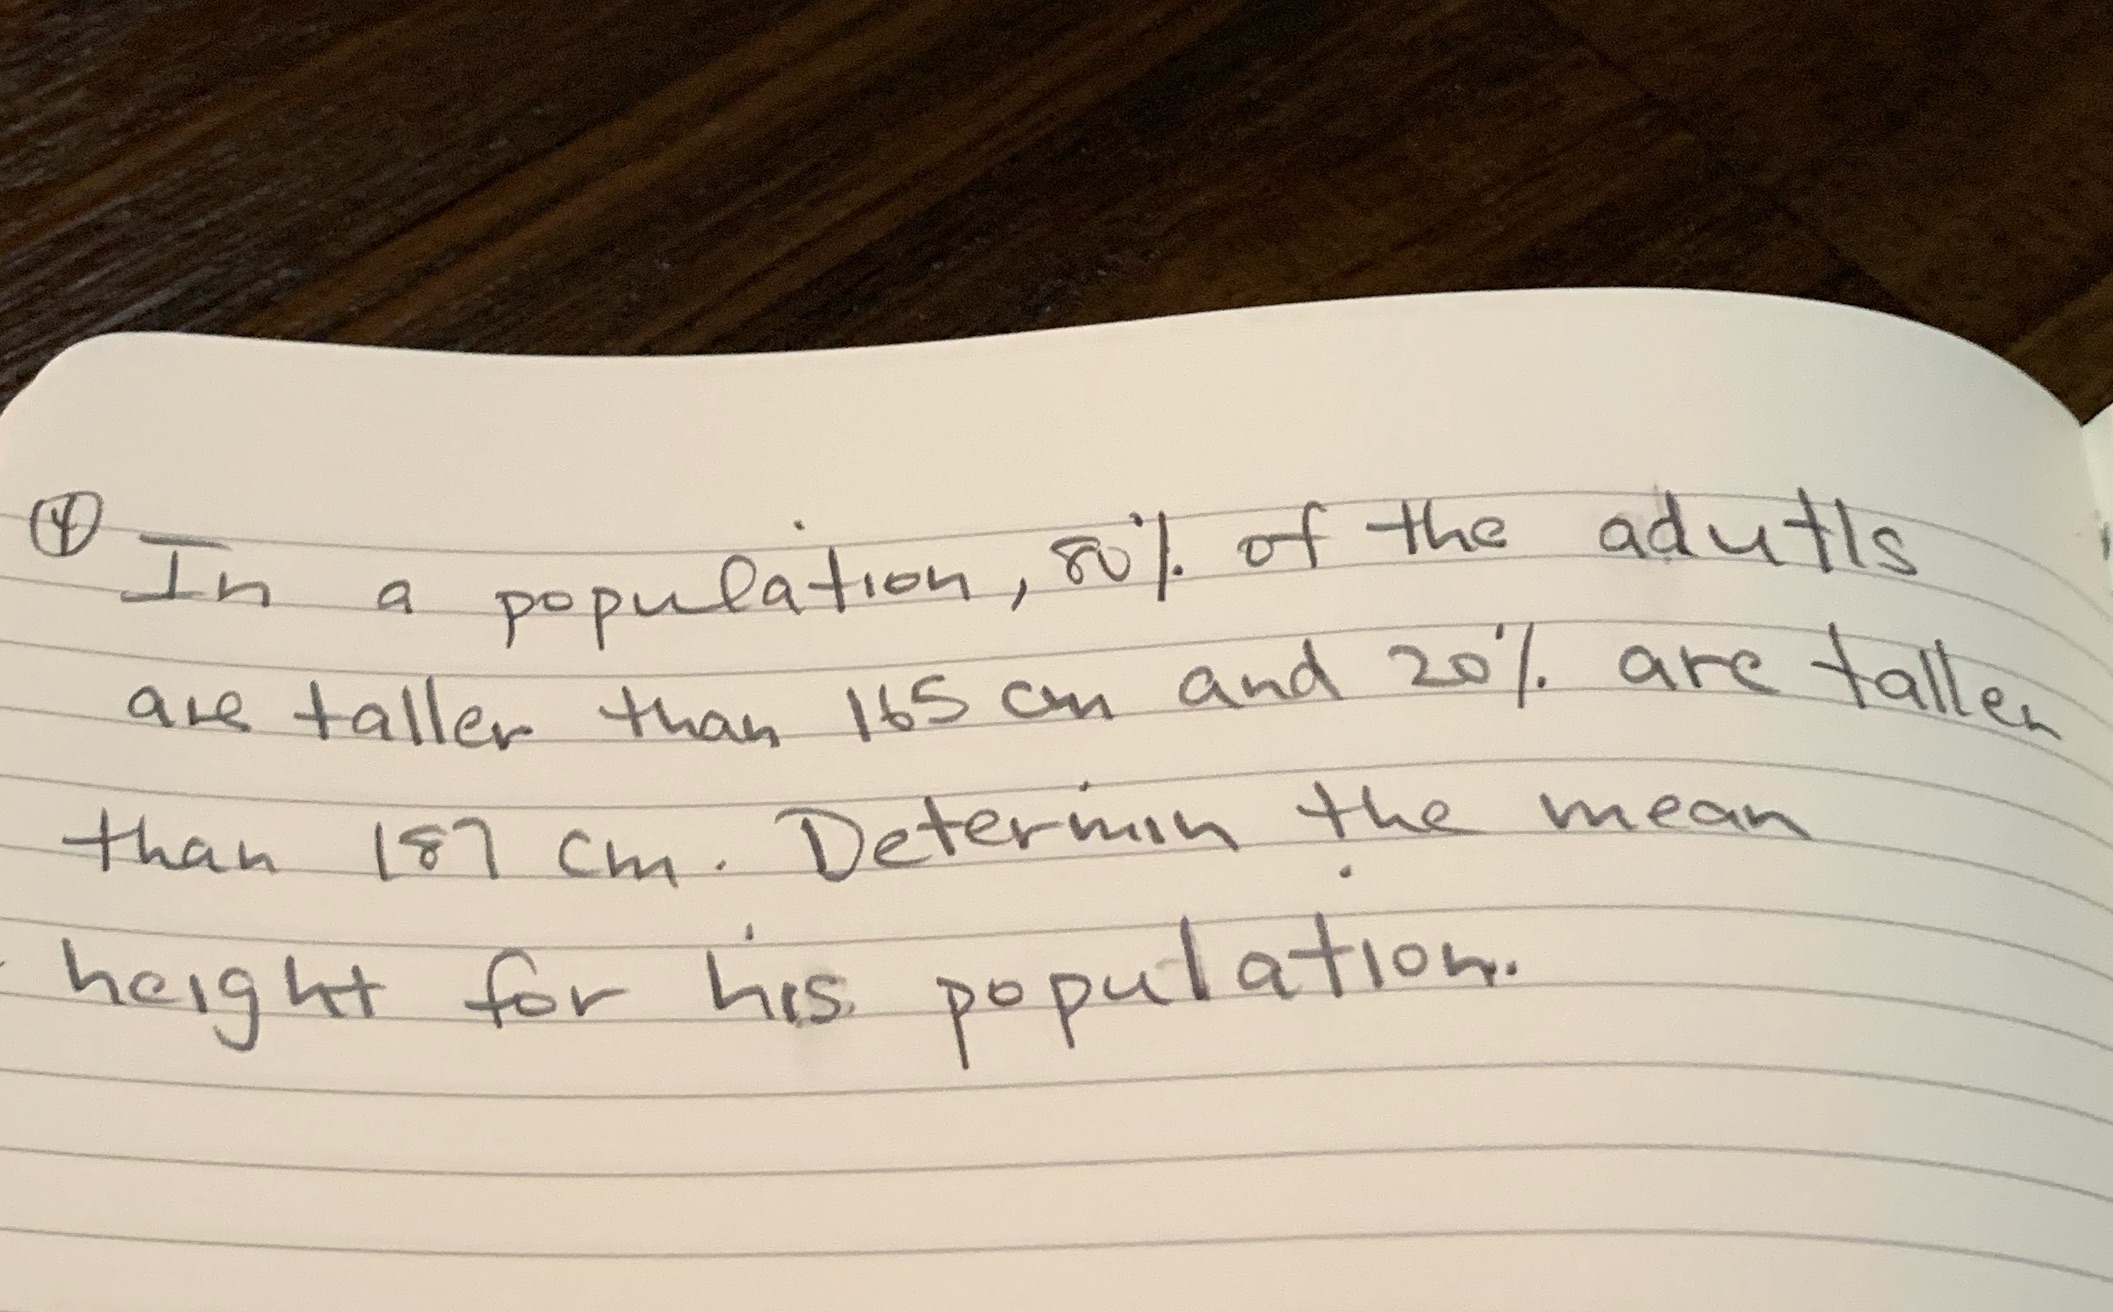 ④ In a population, 80% of the adutls
are taller than 165 cm and 20% are taller
than 187 cm. Determin the mean
height for his population.